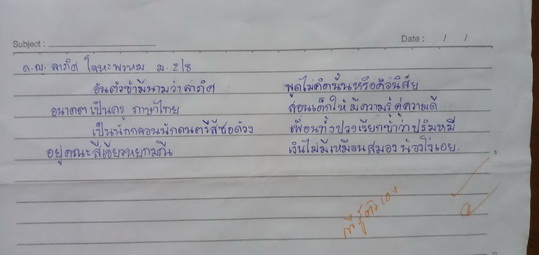 Subject : Date : / /
ด.ญ. ลาภิศ โลหะพรหม ม. 2/8
อันตัวข้ามีนามว่าลาภิศ พูดไม่คิดนั้นหรือคือนิสัย
อนาคตเป็นครู ภาษาไทย สอนเด็กให้ มีความรู้ คู่ความดี
เป็นนักกลอนนักดนตรีสีซอด้วง เพื่อนทั้งปวงเรียกข้าว่าปริมหมี
อยู่คณะสีเขียวหยกมณี เงินไม่มีเหมือนสมอง น้องโง่เอย.